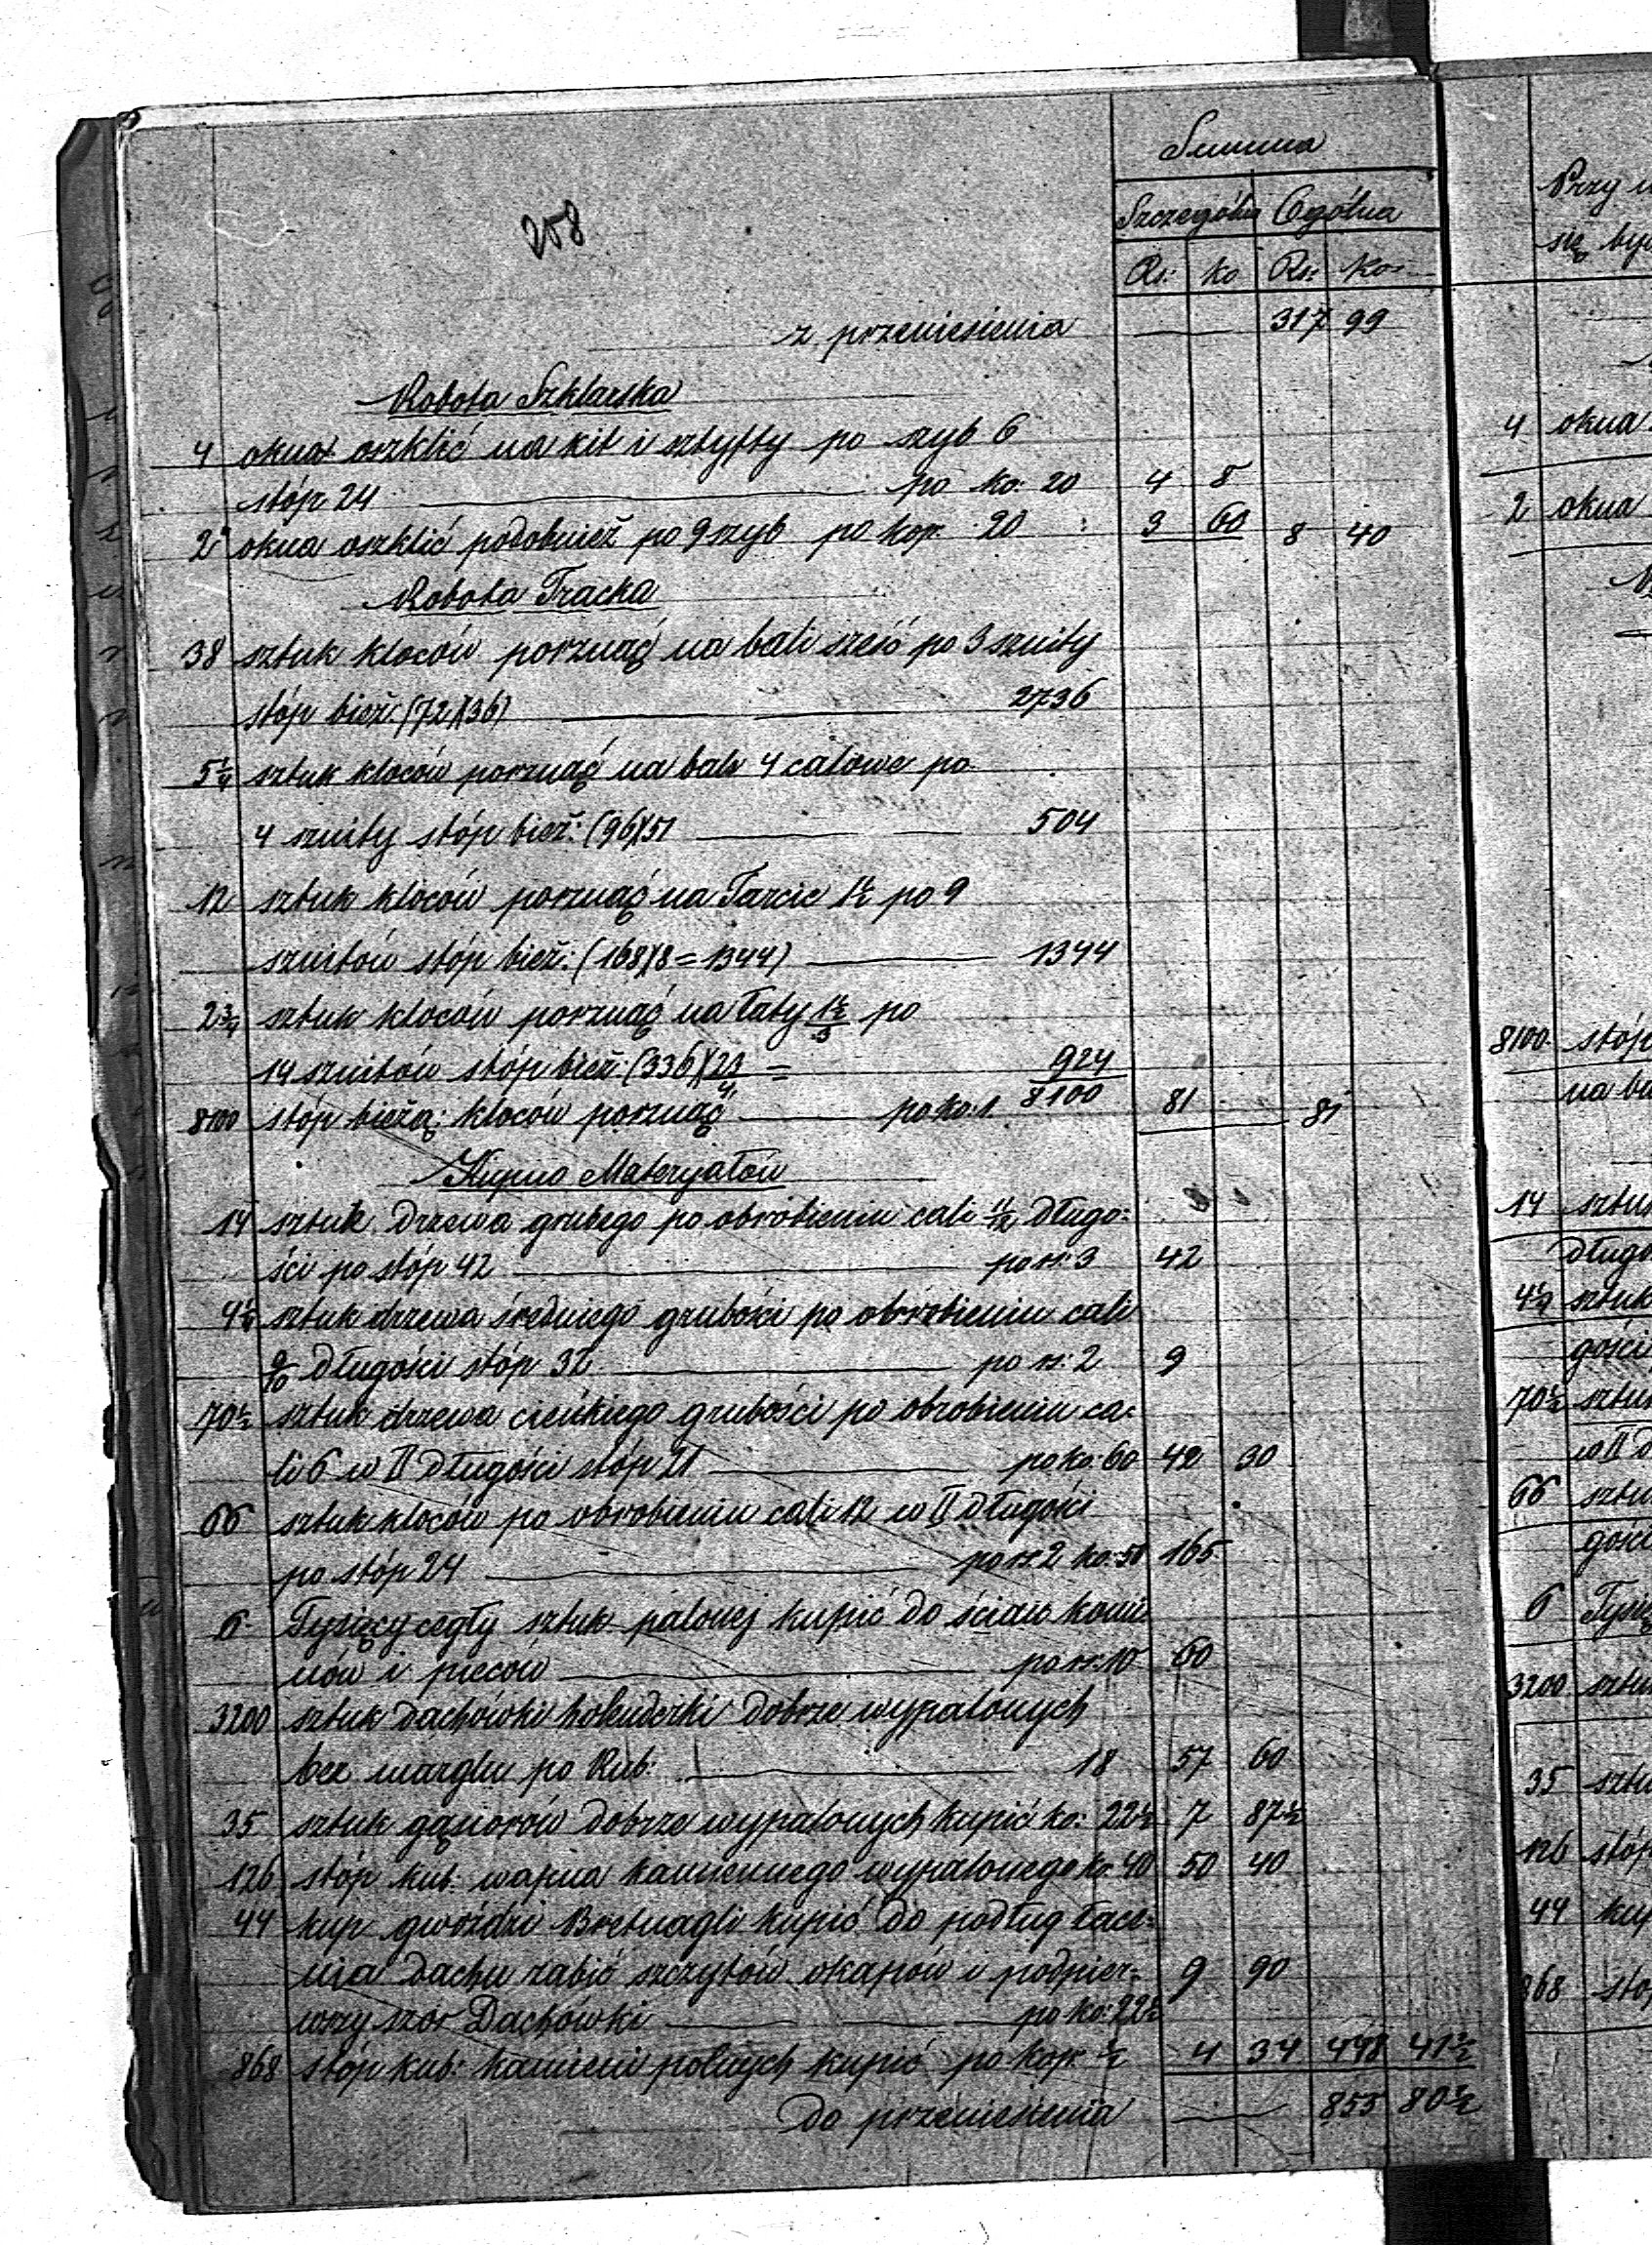 Summa
Szczególna Ogólna
Rs: ko Rs: Ko:
258
z przeniesienia 317 99
Robota Szklarska
4 okna oszklić na kit i sztyfty po szyb 6
stóp 24 po ko: 20 4 8
2 okna oszklić podobnież po 9 szyb po kop. 20 3 60 8 40
Robota Tracka
38 sztuk kloców porznąć na bali sześć po 3 sznity
stóp bież: (72)(36) 2736
5 1/4 sztuk kloców porznąć na bale 4 calowe po
4 sznity stóp bież: (96)(5 504
12 sztuk kloców porznąć na Tarcic 1 1/2 po 9
sznitów stóp bież: (168)(8=1344) 1344
2 3/4 sztuk kloców porznąć na łaty 1 1/2/3 po
14 sznitów stóp bież: (336)(2 3/4 = 924
8100
8100 stóp bieżą: kloców porznąć po ko: 1 81 81
Kupno Materyałów
14 sztuk drzewa grubego po obrobieniu cali 11/12 długo:
ści po stóp 42 po rs: 3 42
4 1/2 sztuk drzewa średniego grubości po obrobieniu cali
9/10 długości stóp 32 po rs: 2 9
70 1/2 sztuk drzewa cieńkiego grubości po obrobieniu ca:
li 6 w II długości stóp 21 po ko: 60 42 30
66 sztuk kloców po obrobieniu cali 12 w II długości
po stóp 24 po rs. 2 ko: 50 165
6 Tysięcy cegły sztuk palonej kupić do ścian komi
nów i pieców po rs: 10 60
3200 sztuk dachówki holenderki dobrze wypalonych
bez marglu po Rub: 18 57 60
35 sztuk gąsiorów dobrze wypalonych kupić ko: 22 1/2 7 87 1/2
126 stóp kub: wapna kamiennego wypalonego ko. 40 50 40
44 kup gwoździ Bretnagli kupić do podług łace:
nia dachu zabić szczytów okapów i podpier: 9 90
wszy szór Dachówki po ko: 22 1/2
868 stóp kub: kamieni polnych kupić po kop. 1/2 4 34 448 41 1/2
Do przeniesienia 855 80 1/2
Przy
się
4 okna
2 okna
8100 stóp
na
14 sztuk
długo
4 1/2 sztuk
gości
70 1/2 sztuk
w II
66 sztu
gości
6 Tysię
3200 sztu
35 sztu
126 stóp
44 kup
868 stóp